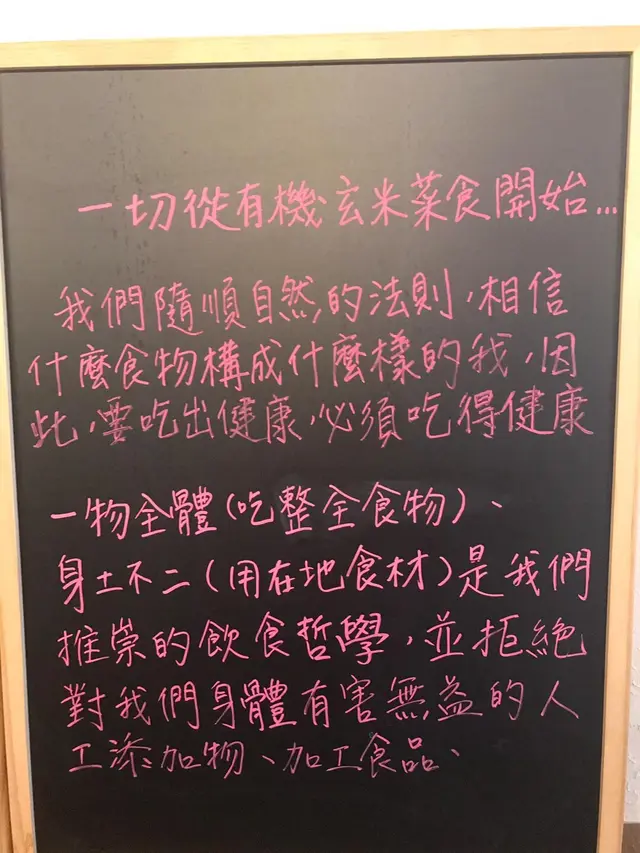 一切從有機玄米菜食開始...
我們隨順自然的法則,相信
什麼食物構成什麼樣的我,因
此,要吃出健康,必須吃得健康
一物全體(吃整全食物)、
身土不二(用在地食材)是我們
推崇的飲食哲學,並拒絕
對我們身體有害無益的人
工添加物、加工食品、